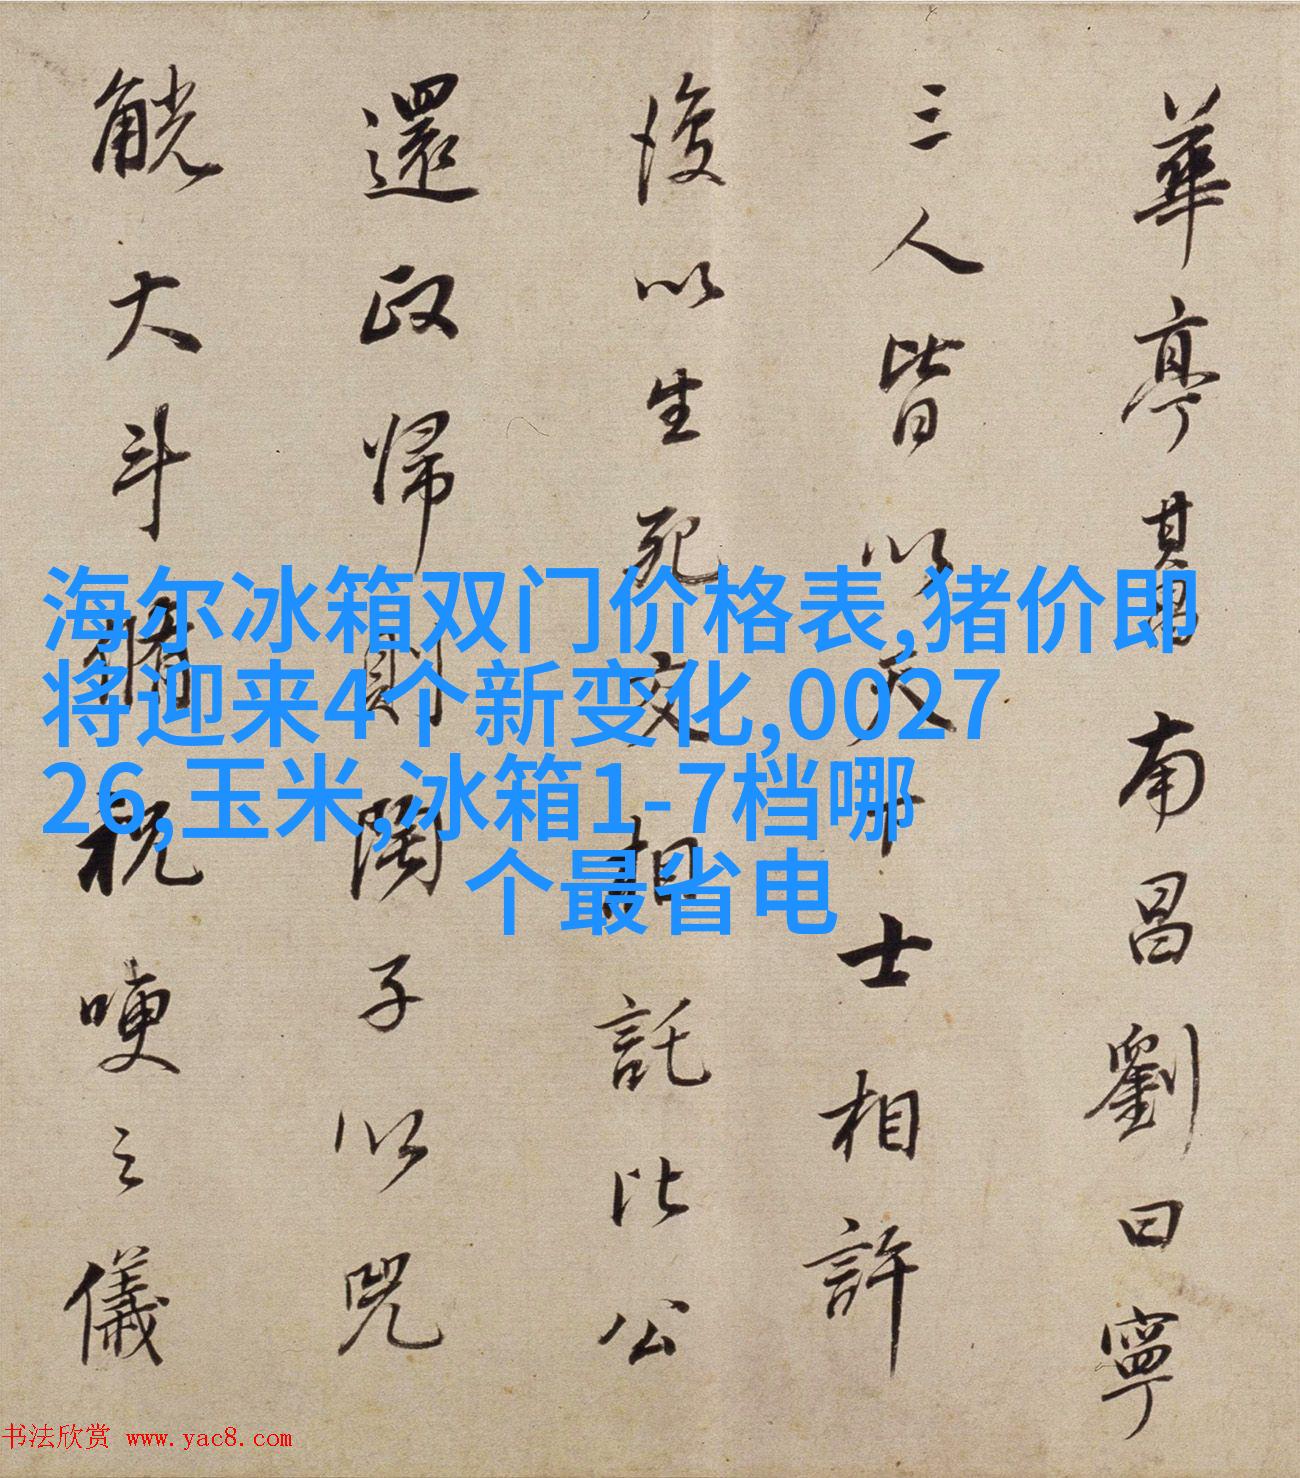 海尔冰箱双门价格表,猪价即
将迎来4个新变化,0027
26,玉米,冰箱1-7档哪
个最省电
華亭其昌南昌劉曰寧
三人皆以天下士相許
後以生死交相託比公
還政歸則陶子以兕
觥大斗脩祝哽之儀
书法欣赏 www.yac8.com